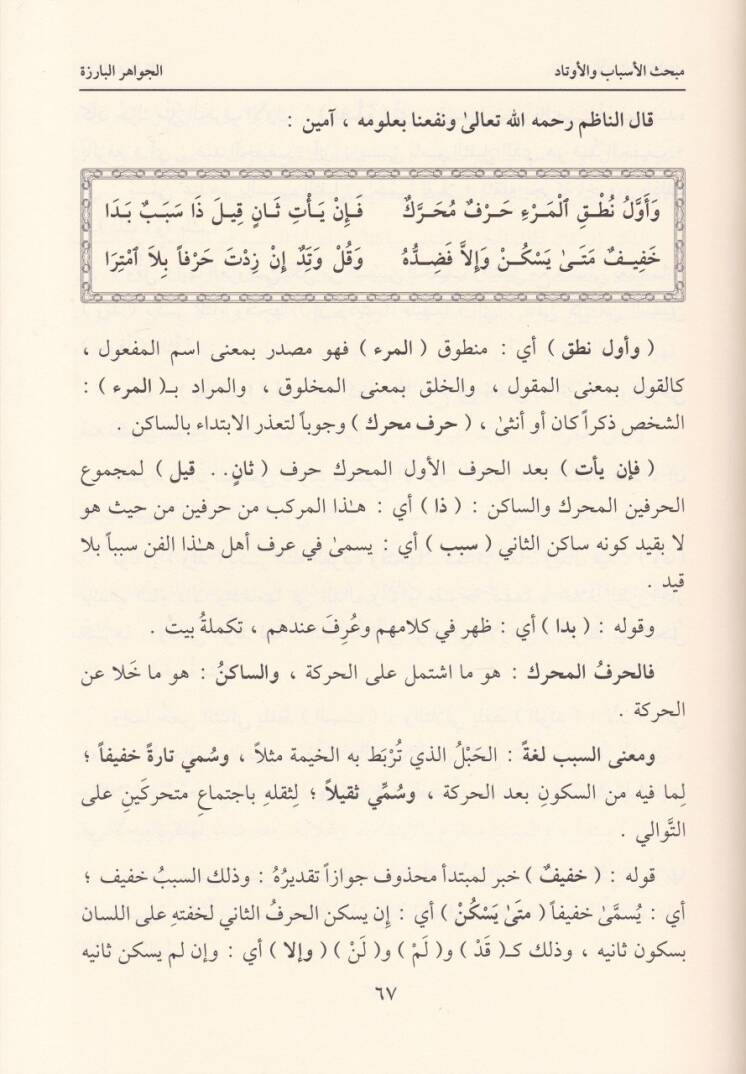 مبحث الأسباب والأوتاد	الجواهر البارزة
قال الناظم رحمه الله تعالىٰ ونفعنا بعلومه ، آمين :
وَأَوَّلُ نُطْقِ ٱلْمَرْءِ حَرْفٌ مُحَرَّكٌ	فَإِنْ يَأْتِ ثَانٍ قِيلَ ذَا سَبَبٌ بَدَا
خَفِيفٌ مَتَىٰ يَسْكُنْ وَإِلاَّ فَضِدُّهُ	وَقُلْ وَتَدٌ إِنْ زِدْتَ حَرْفاً بِلاَ ٱمْتِرَا
( وأول نطق ) أي : منطوق ( المرء ) فهو مصدر بمعنى اسم المفعول ،
كالقول بمعنى المقول ، والخلق بمعنى المخلوق ، والمراد بـ( المرء ) :
الشخص ذكراً كان أو أنثىٰ ، ( حرف محرك ) وجوباً لتعذر الابتداء بالساكن .
( فإن يأت ) بعد الحرف الأول المحرك حرف ( ثانٍ . . قيل ) لمجموع
الحرفين المحرك والساكن : ( ذا ) أي : هـٰذا المركب من حرفين من حيث هو
لا بقيد كونه ساكن الثاني ( سبب ) أي : يسمىٰ في عرف أهل هـٰذا الفن سبباً بلا
قيد .
وقوله : ( بدا ) أي : ظهر في كلامهم وعُرِفَ عندهم ، تكملةُ بيت .
فالحرفُ المحرك : هو ما اشتمل على الحركة ، والساكنُ : هو ما خَلا عن
الحركة .
ومعنى السبب لغةً : الحَبْلُ الذي تُرْبَط به الخيمة مثلاً ، وسُمي تارةً خفيفاً ؛
لِما فيه من السكونِ بعد الحركة ، وسُمِّي ثقيلاً ؛ لِثقلهِ باجتماعِ متحركَينِ على
التَّوالي .
قوله : ( خفيفٌ ) خبر لمبتدأ محذوف جوازاً تقديرُهُ : وذلك السببُ خفيف ؛
أي : يُسمَّىٰ خفيفاً ( متىٰ يَسْكُنْ ) أي : إِن يسكن الحرفُ الثاني لخفتهِ على اللسان
بسكون ثانيه ، وذلك كـ( قَدْ ) و( لَمْ ) و( لَنْ ) ( وإلا ) أي : وإن لم يسكن ثانيه
٦٧